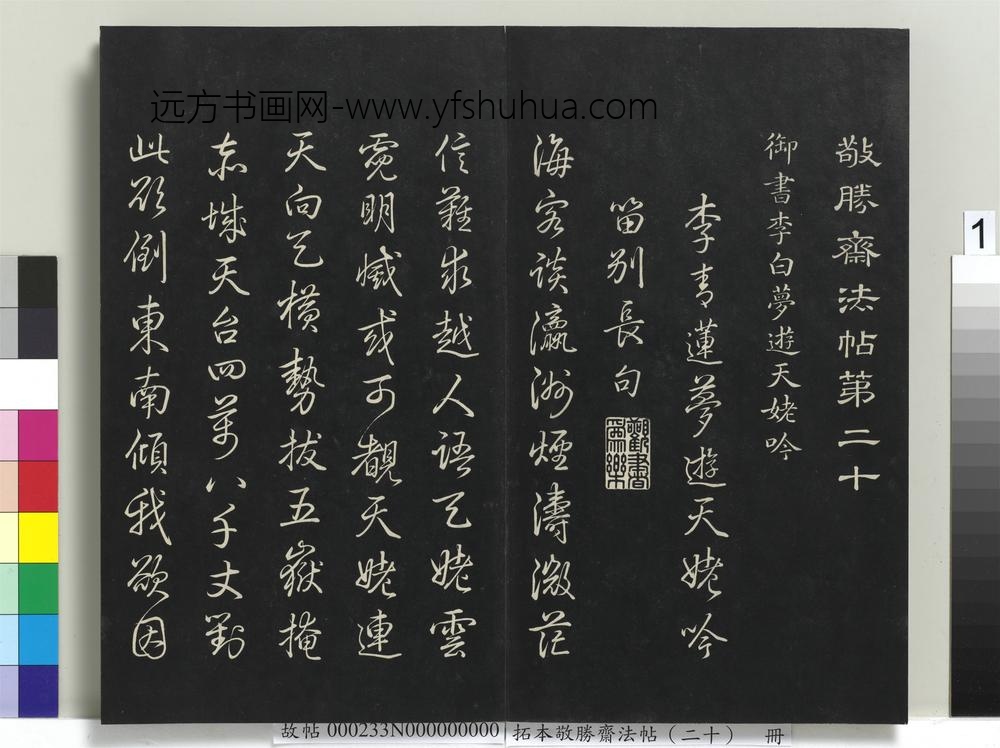 远方书画网-www.yfshuhua.com
敬勝齋法帖第二十
御書李白夢遊天姥吟
李青蓮夢遊天姥吟
留别長句
觀書為樂
海客談瀛洲煙濤微茫
信難求越人語天姥雲
霓明滅或可覩天姥連
天向天橫勢拔五嶽掩
赤城天台四萬八千丈對
此欲倒東南傾我欲因
1
故帖 000233N000000000 拓本敬勝齋法帖（二十） 冊